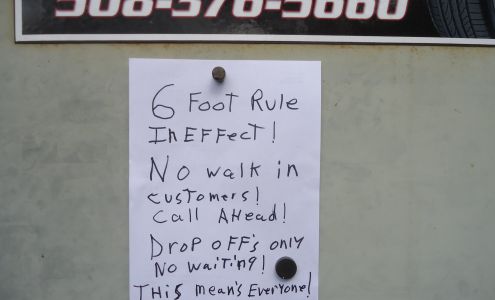 508-376-5660
6 Foot Rule
In EFFect!
No walk in
customers!
Call AHead!
Drop oFF's only
No waiting!
THis mean's Everyone!